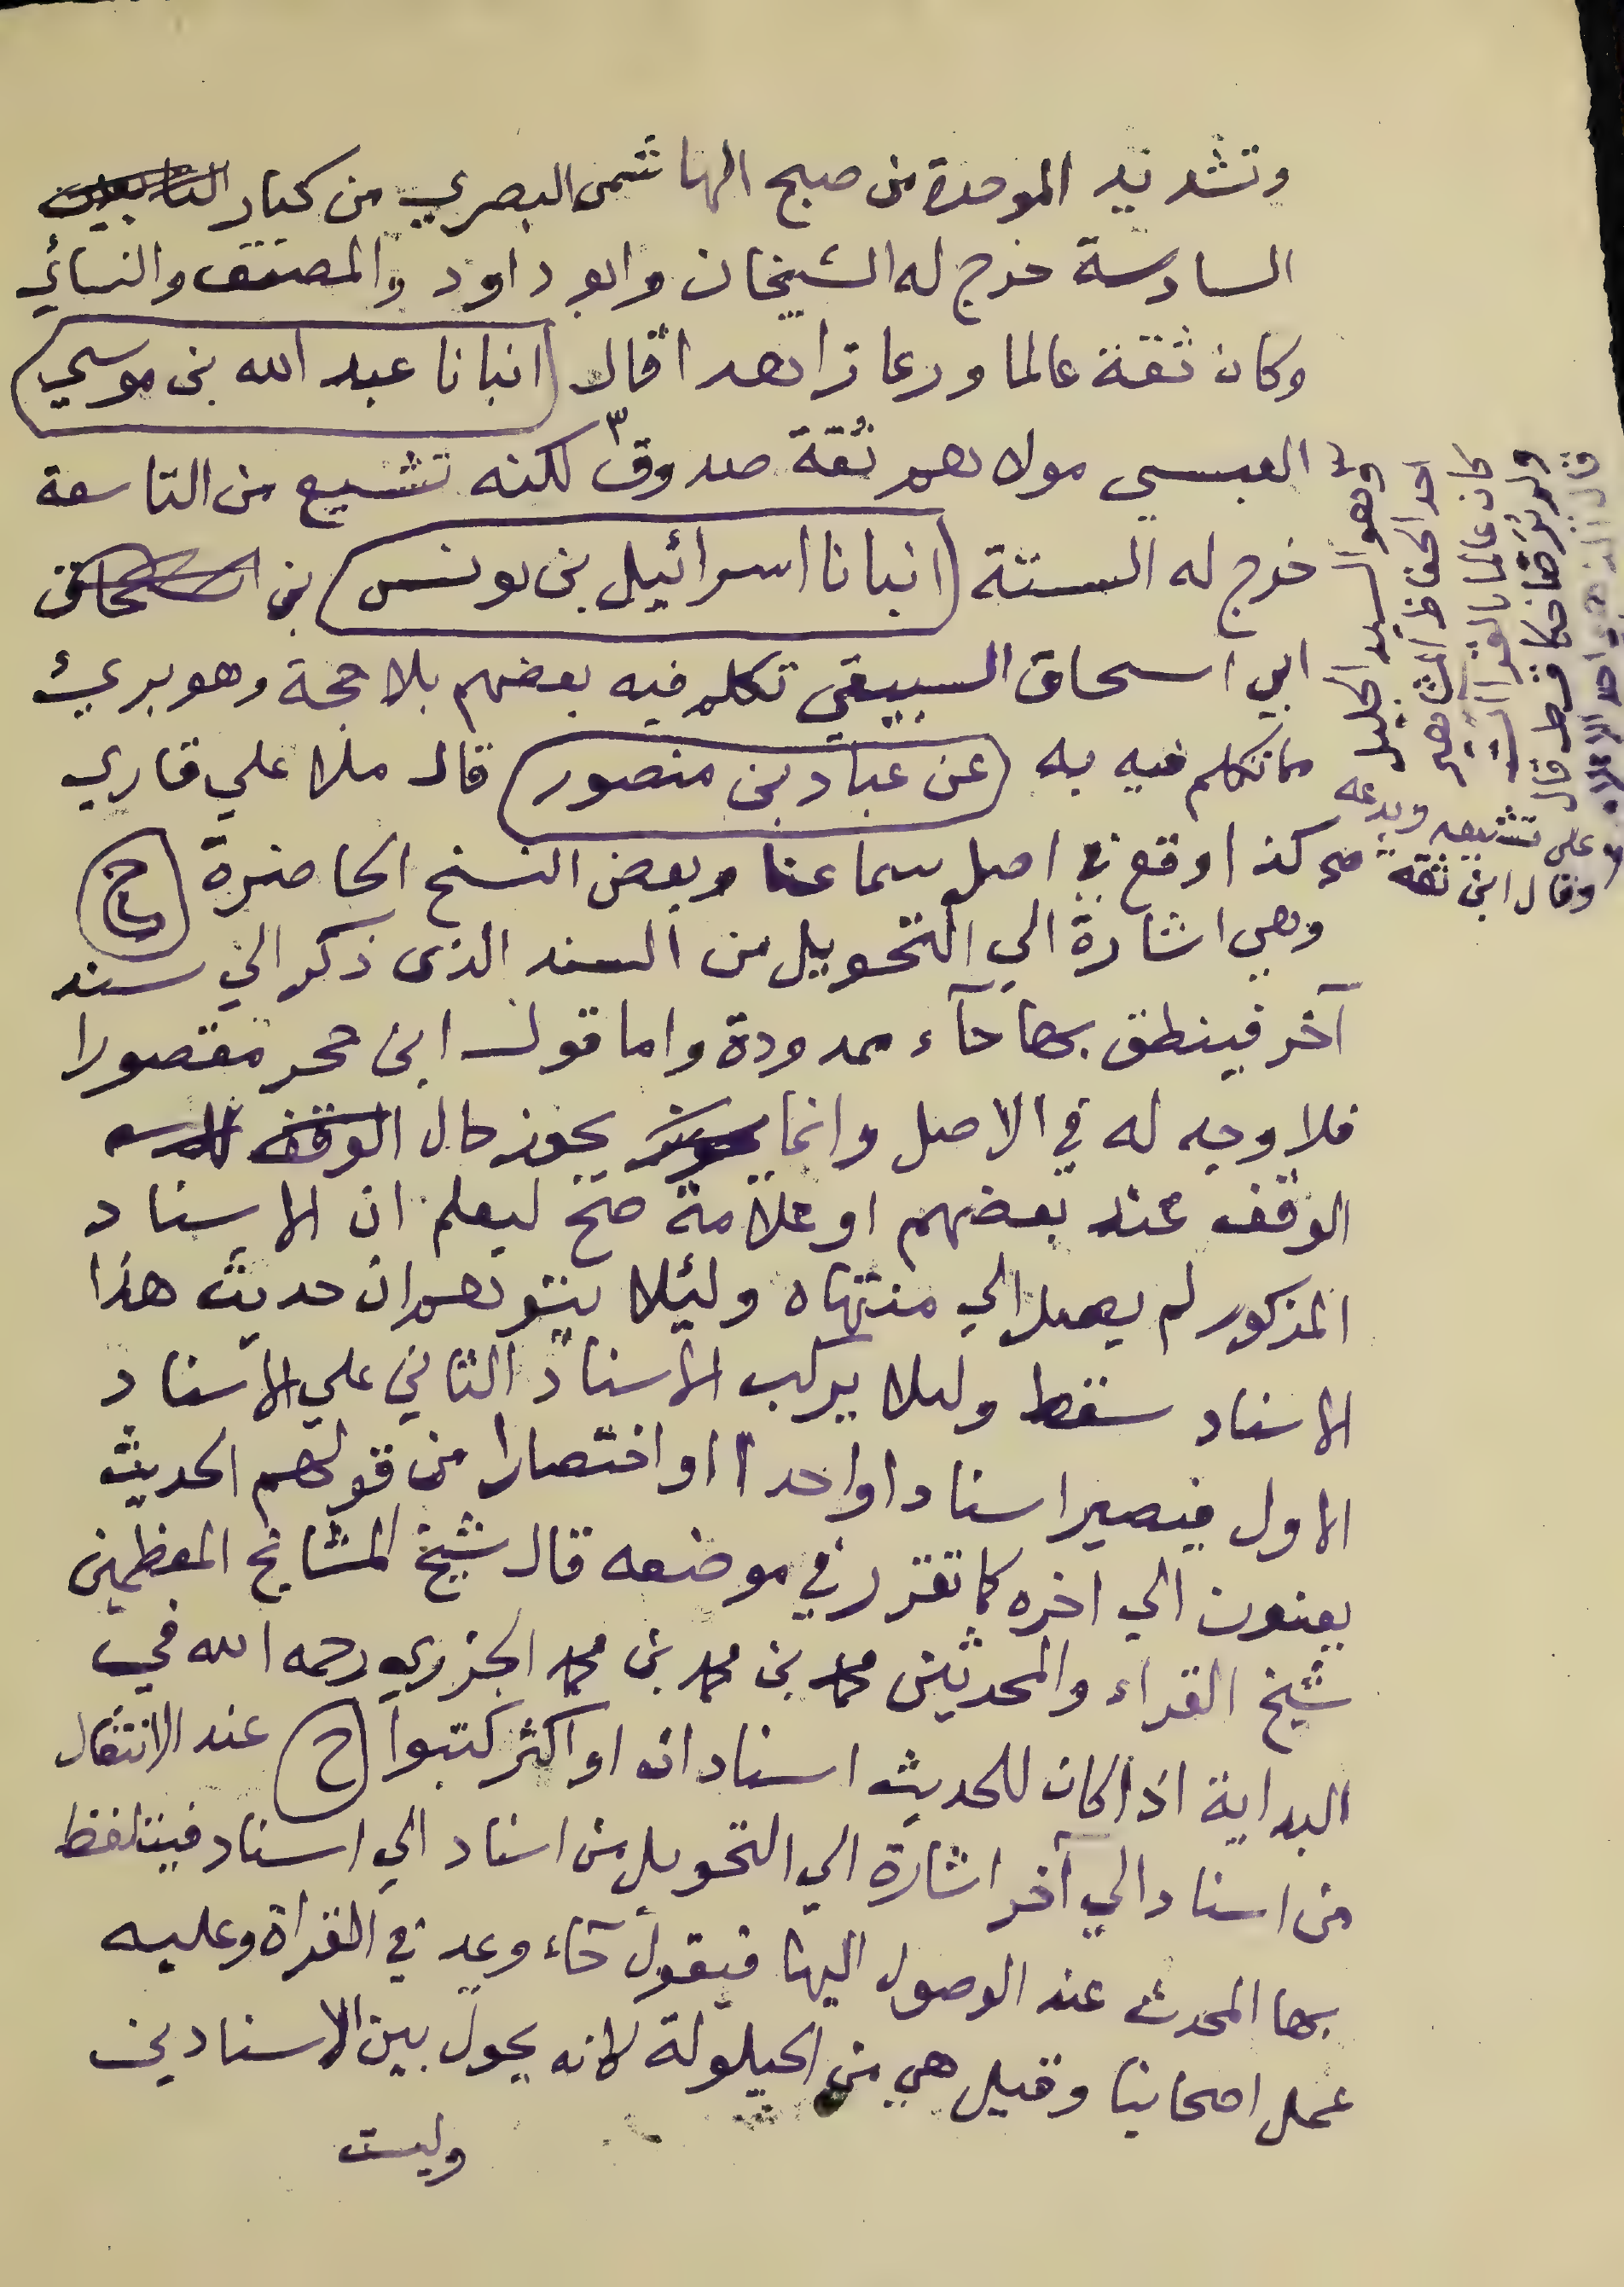 وتشديد الموحدة من صبح الهاشمى البصري من كبار التابعين
السادسة خرج له الشيخان وابو داود والمصنف والنسائي
وكان ثقة عالما ورعا زاهدا قال انبانا عبد الله بن موسي
العبسي مولاهم ثقة صدوق لكنه تشيع من التاسعة
خرج له الستة انبانا اسرائيل بن يونس بن اسحاق
ابي اسحاق السبيعي تكلم فيه بعضهم بلا حجة وهو بريئ
مما تكلم فيه به عن عباد بن منصور قال ملا علي قاري
كذا وقع في اصل سماعنا وبعض النسخ الحاضرة ح
وهي اشارة الي التحويل من السند الذى ذكر الي سند
آخر فينطق بها حآء ممدودة واما قول ابن حجر مقصورا
فلا وجه له في الاصل وانما يجوز يجوز حال الوقف
الوقف عند بعضهم او علامة صح ليعلم ان الاسناد
المذكور لم يصل الي منتهاه ولئلا يتوهم ان حديث هذا
الاسناد سقط ولئلا يركب الاسناد الثاني علي الاسناد
الاول فيصير اسنادا واحدا او اختصارا من قولهم الحديث
يعنون الي اخره كما تقرر في موضعه قال شيخ المشايخ المعظمين
شيخ القراء والمحدثين محمد بن محمد بن محمد الجزري رحمه الله في
البداية اذا كان للحديث اسنادان او اكثر كتبوا ح عند الانتقال
من اسناد الي آخر اشارة الي التحويل من اسناد الي اسناد فيتلفظ
بها المحدث عند الوصول اليها فيقول حآء وعد في القراة وعليه
عمل اصحابنا وقيل هي من الحيلولة لانه يحول بين الاسنادين
وليست
وهو السيد الجليل
احد الحفاظ المشاهير
كان عالما بالقراات
ولم ير ضاحكا قط قال
احد الاعلام
على تشيعه وبدعه
وقال ابن ثقة صح